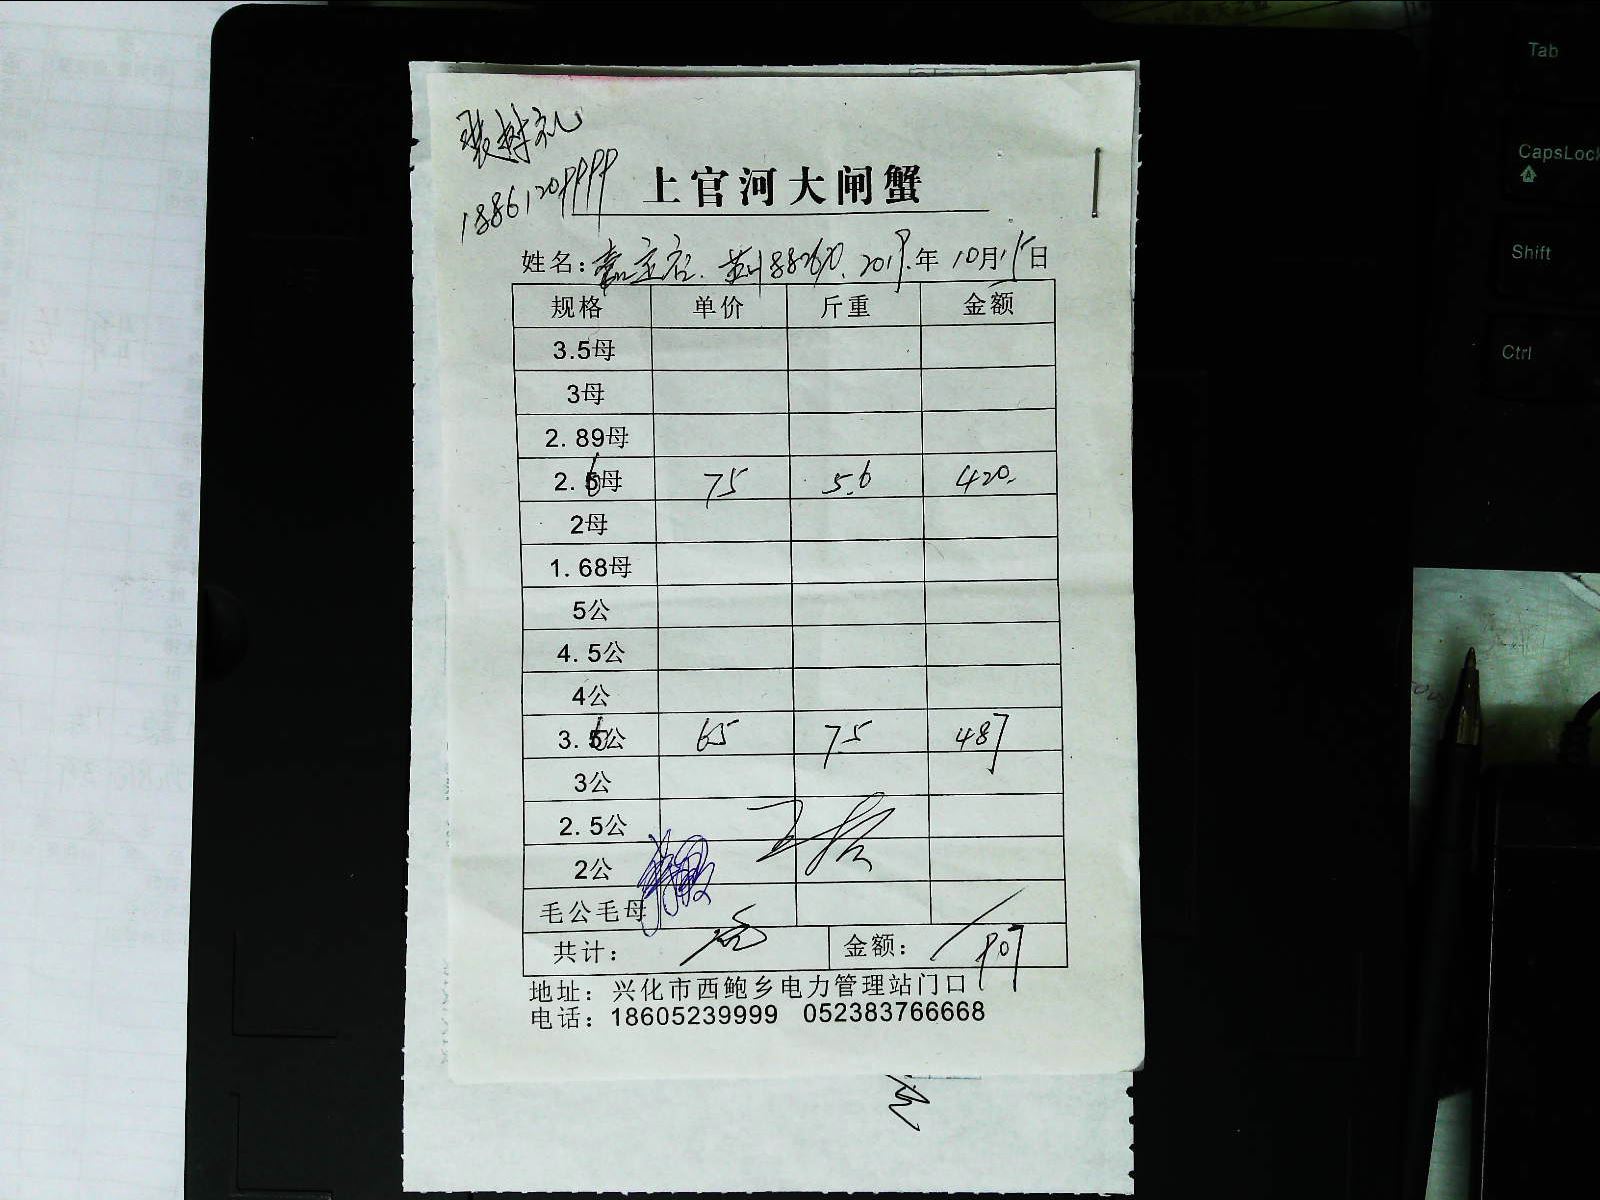 裴树礼
18861209999
上官河大闸蟹
姓名：嘉定店. 2019.年 10月15日
规格 单价 斤重 金额
3.5母
3母
2.89母
2.6母 75 5.6 420.
2母
1.68母
5公
4.5公
4公
3.6公 65 7.5 487
3公
2.5公
2公
毛公毛母
共计： 金额： 907
地址：兴化市西鲍乡电力管理站门口
电话：18605239999 052383766668
Tab
CapsLock
Shift
Ctrl